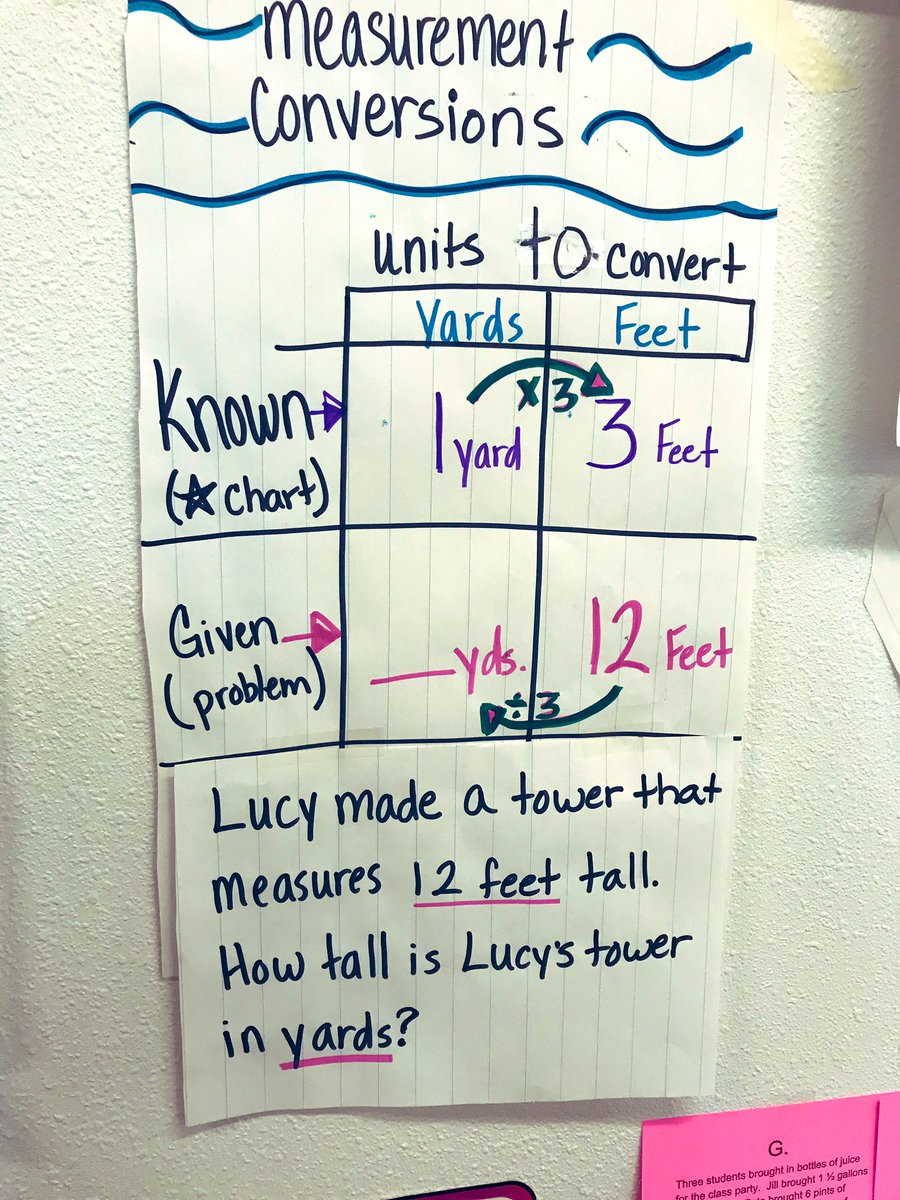 Measurement
Conversions
units to convert
Yards Feet
Known
(☆ chart)
1 yard × 3 3 Feet
Given
(problem)
___yds. 12 Feet
÷ 3
Lucy made a tower that
measures 12 feet tall.
How tall is Lucy's tower
in yards?
G.
Three students brought in bottles of juice
for the class party. Jill brought 1 ½ gallons
brought 6 pints of